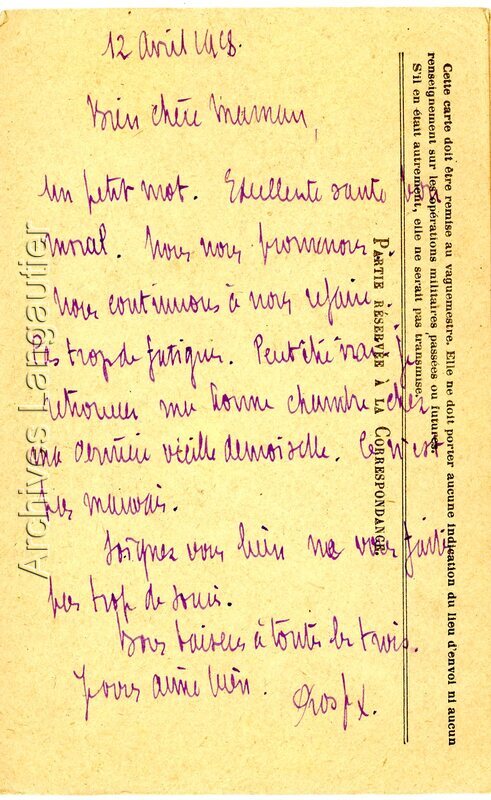 12 Avril 1918.
Bien chère Maman,
Un petit mot. Excellente santé bon
moral. Nous nous promenons
Nous continuons à nous refaire
pas trop de fatigue. Peut être irai je
retrouver ma bonne chambre chez
ma dernière vieille demoiselle. Ce n'est
pas mauvais.
Soignez vous bien ne vous faites
pas trop de soucis.
Bons baisers à toutes les trois.
Je vous aime bien.
Cette carte doit être remise au vaguemestre. Elle ne doit porter aucune indication du lieu d'envoi ni aucun
renseignement sur les opérations militaires passées ou futures.
S'il en était autrement, elle ne serait pas transmise.
PARTIE RÉSERVÉE À LA CORRESPONDANCE
Archives Langautier